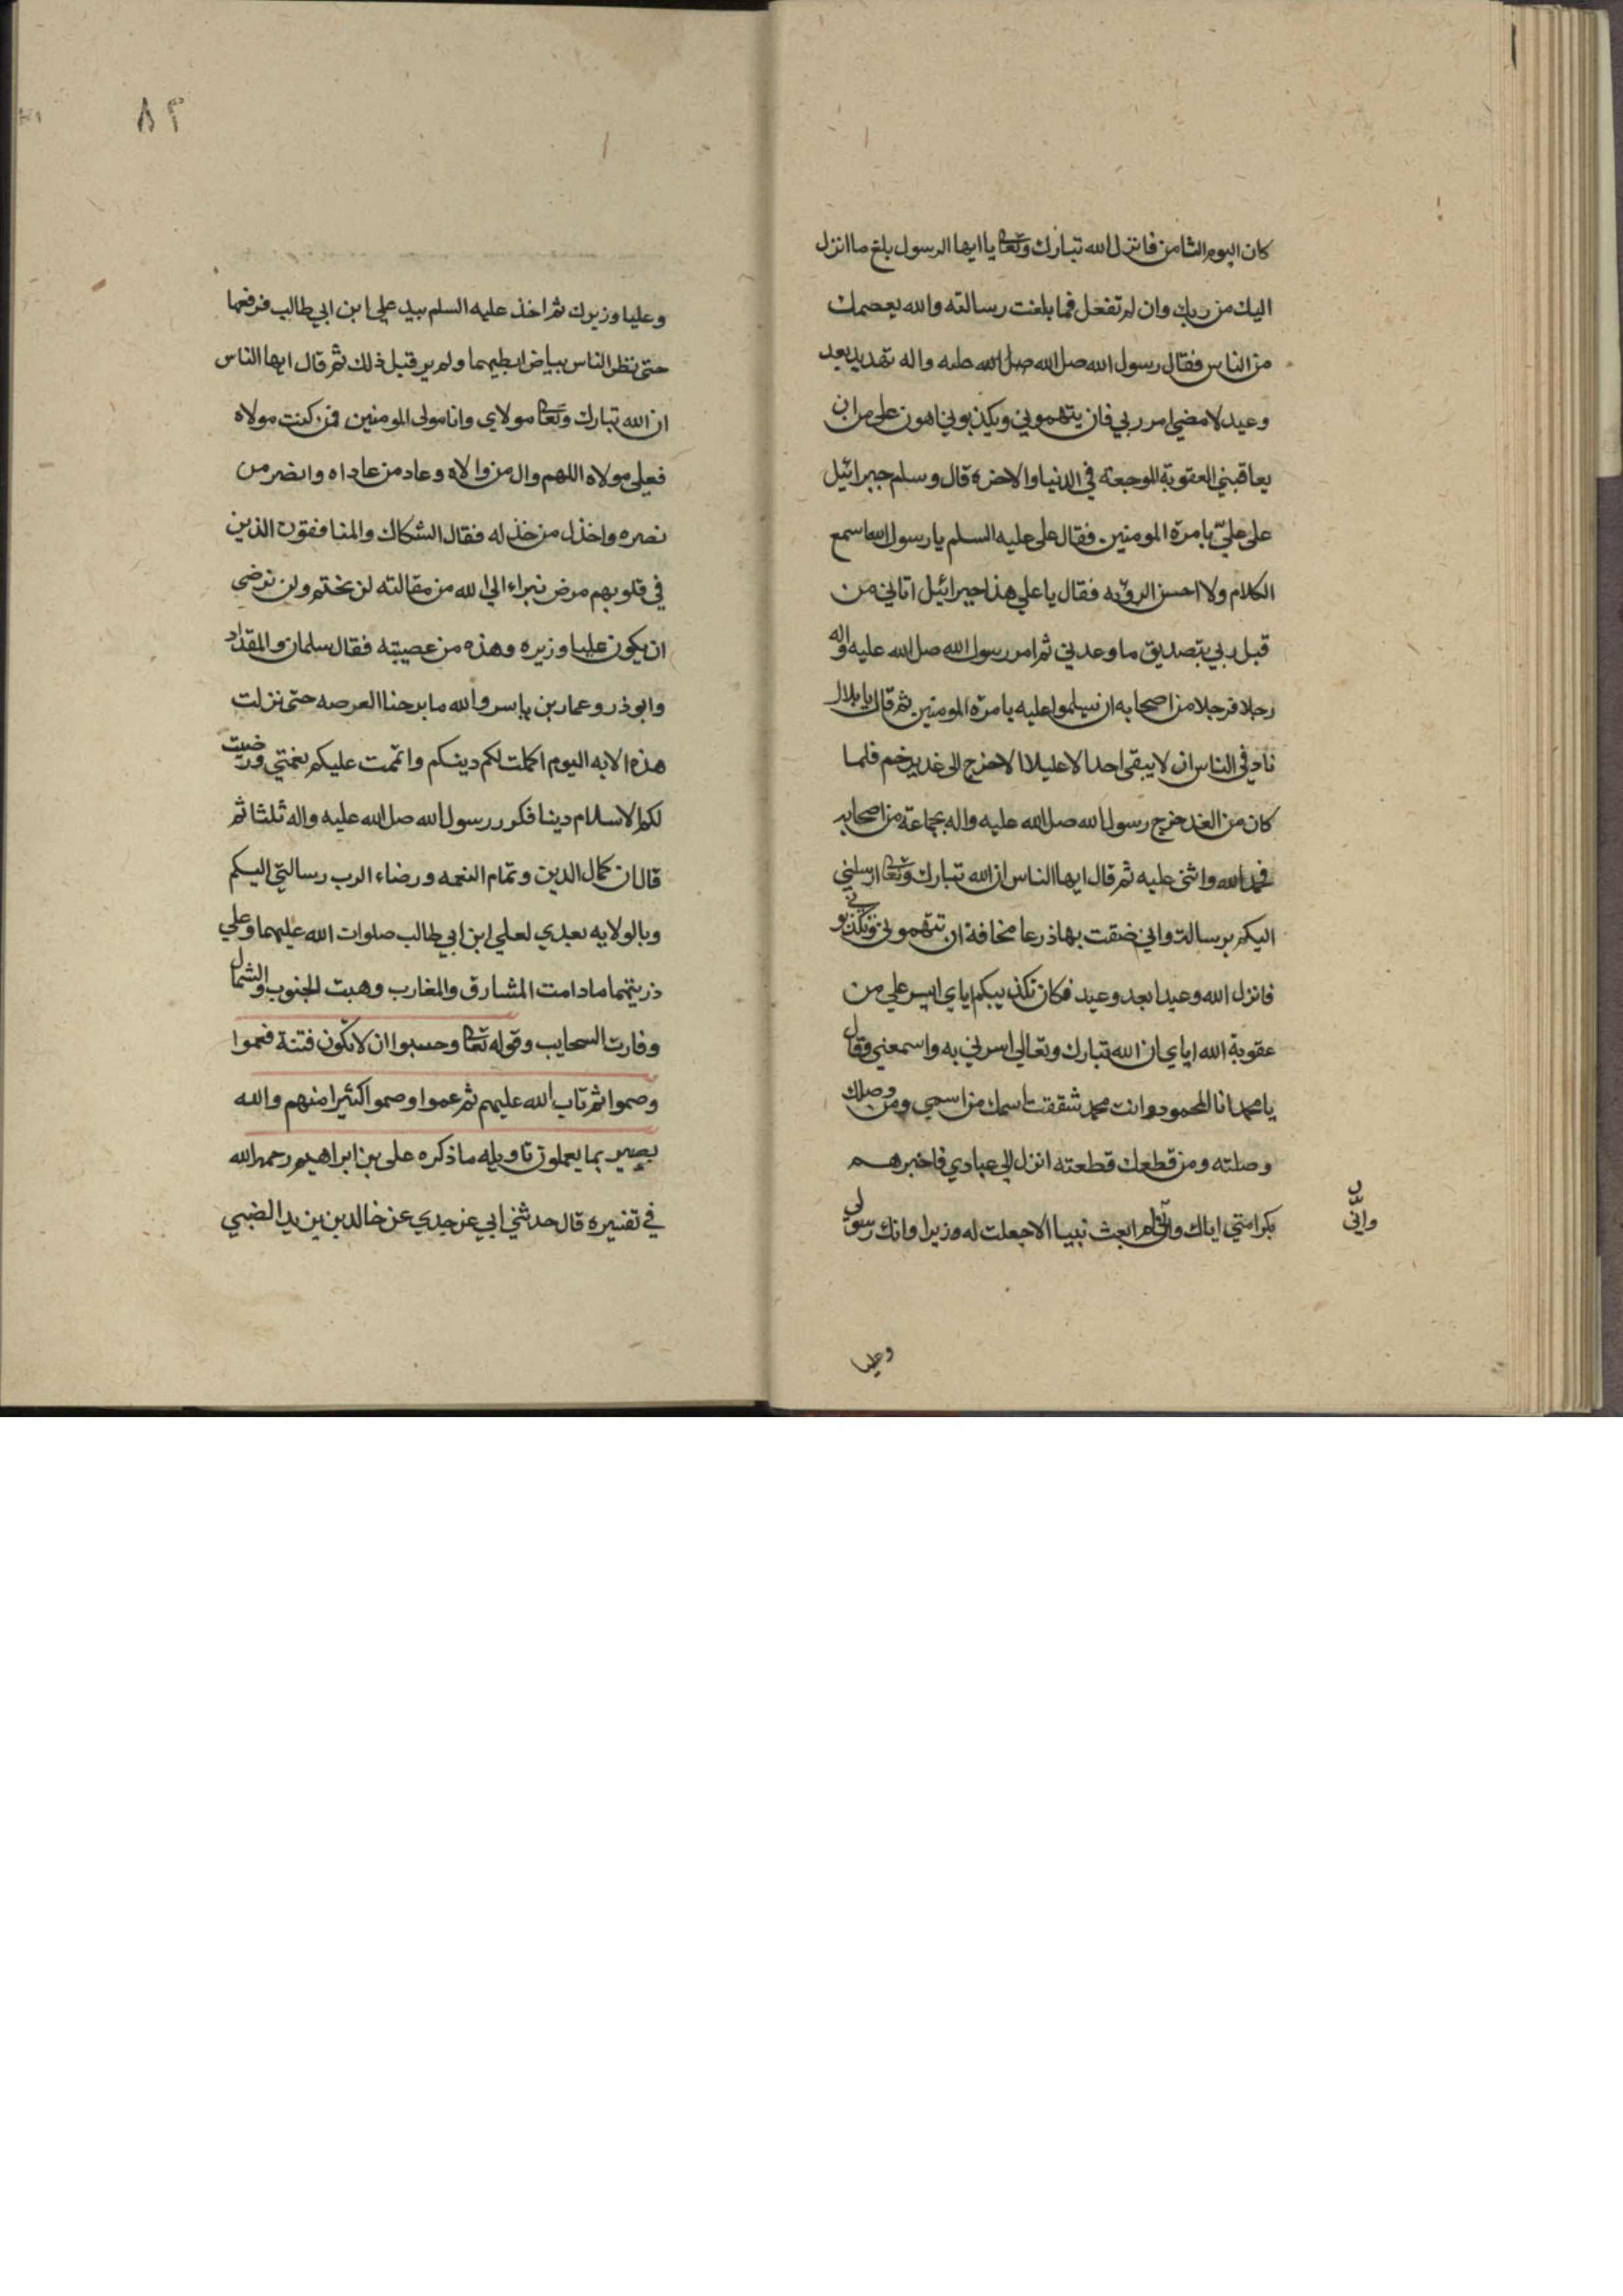 كان اليوم الثامن فانزل الله تبارك وتعالى يا ايها الرسول بلغ ما انزل
اليك من ربك وان لم تفعل فما بلغت رسالته والله يعصمك
من الناس فقال رسول الله صل الله صل الله عليه واله تهديد بعد
وعيد لامضين امر ربي فان يتهموني ويكذبوني اهون علي من ان
يعاقبني العقوبة الموجعة في الدنيا والاخرة قال وسلم جبرائيل
على علي بامرة المومنين فقال علي عليه السلم يا رسول الله اسمع
الكلام ولا احسن الروية فقال يا علي هذا جبرائيل اتاني من
قبل ربي بتصديق ما وعدني ثم امر رسول الله صل الله عليه واله
رجلا فرجلا من اصحابه ان يسلموا عليه بامرة المومنين ثم قال يا بلال
ناد في الناس ان لا يبقى احد الا عليلا الا خرج الى غدير خم فلما
كان من الغد خرج رسول الله صل الله عليه واله بجماعة من اصحابه
فحمد الله واثنى عليه ثم قال ايها الناس ان الله تبارك وتعالى ارسلني
اليكم برسالة واني ضقت بها ذرعا مخافة ان تتهموني وتكذبوني
فانزل الله وعيدا بعد وعيد فكان تكذيبكم اياي ايسر علي من
عقوبة الله اياي ان الله تبارك وتعالى اسرني به واسمعني وقال
يا محمد انا المحمود وانت محمد شققت اسمك من اسمي ومن وصلك
وصلته ومن قطعك قطعته انزل الى عبادي فاخبرهم
بكرامتي اياك واني لم ابعث نبيا الا جعلت له وزيرا وانك رسولي
وانّى
وعليا
٨٢
وعليا وزيرك ثم اخذ عليه السلم بيد علي ابن ابي طالب فرفعها
حتى نظر الناس بياض ابطيهما ولم ير قبل ذلك ثم قال ايها الناس
ان الله تبارك وتعالى مولاي وانا مولى المومنين فمن كنت مولاه
فعلي مولاه اللهم وال من والاه وعاد من عاداه وانصر من
نصره واخذل من خذله فقال الشكاك والمنافقون الذين
في قلوبهم مرض نبراء الى الله من مقالته لن نختم ولن نرضى
ان يكون عليا وزيره وهذه من عصبيته فقال سلمان والمقداد
وابو ذر وعمار بن ياسر والله ما برحنا العرصه حتى نزلت
هذه الايه اليوم اكملت لكم دينكم واتممت عليكم نعمتي ورضيت
لكم الاسلام دينا فكرر رسول الله صل الله عليه واله ثلثا ثم
قال ان كمال الدين وتمام النعمه ورضاء الرب رسالتي اليكم
وبالولايه بعدي لعلي ابن ابي طالب صلوات الله عليهما وعلي
ذريتهما ما دامت المشارق والمغارب وهبت الجنوب والشمال
وفارت السحايب وقوله تعالى وحسبوا ان لا تكون فتنة فعموا
وصموا ثم تاب الله عليهم ثم عموا وصموا كثيرا منهم والله
بصير بما يعملون تاويله ما ذكره علي بن ابراهيم رحمه الله
في تفسيره قال حدثني ابي عن جدي عن خالد بن يزيد الضبي